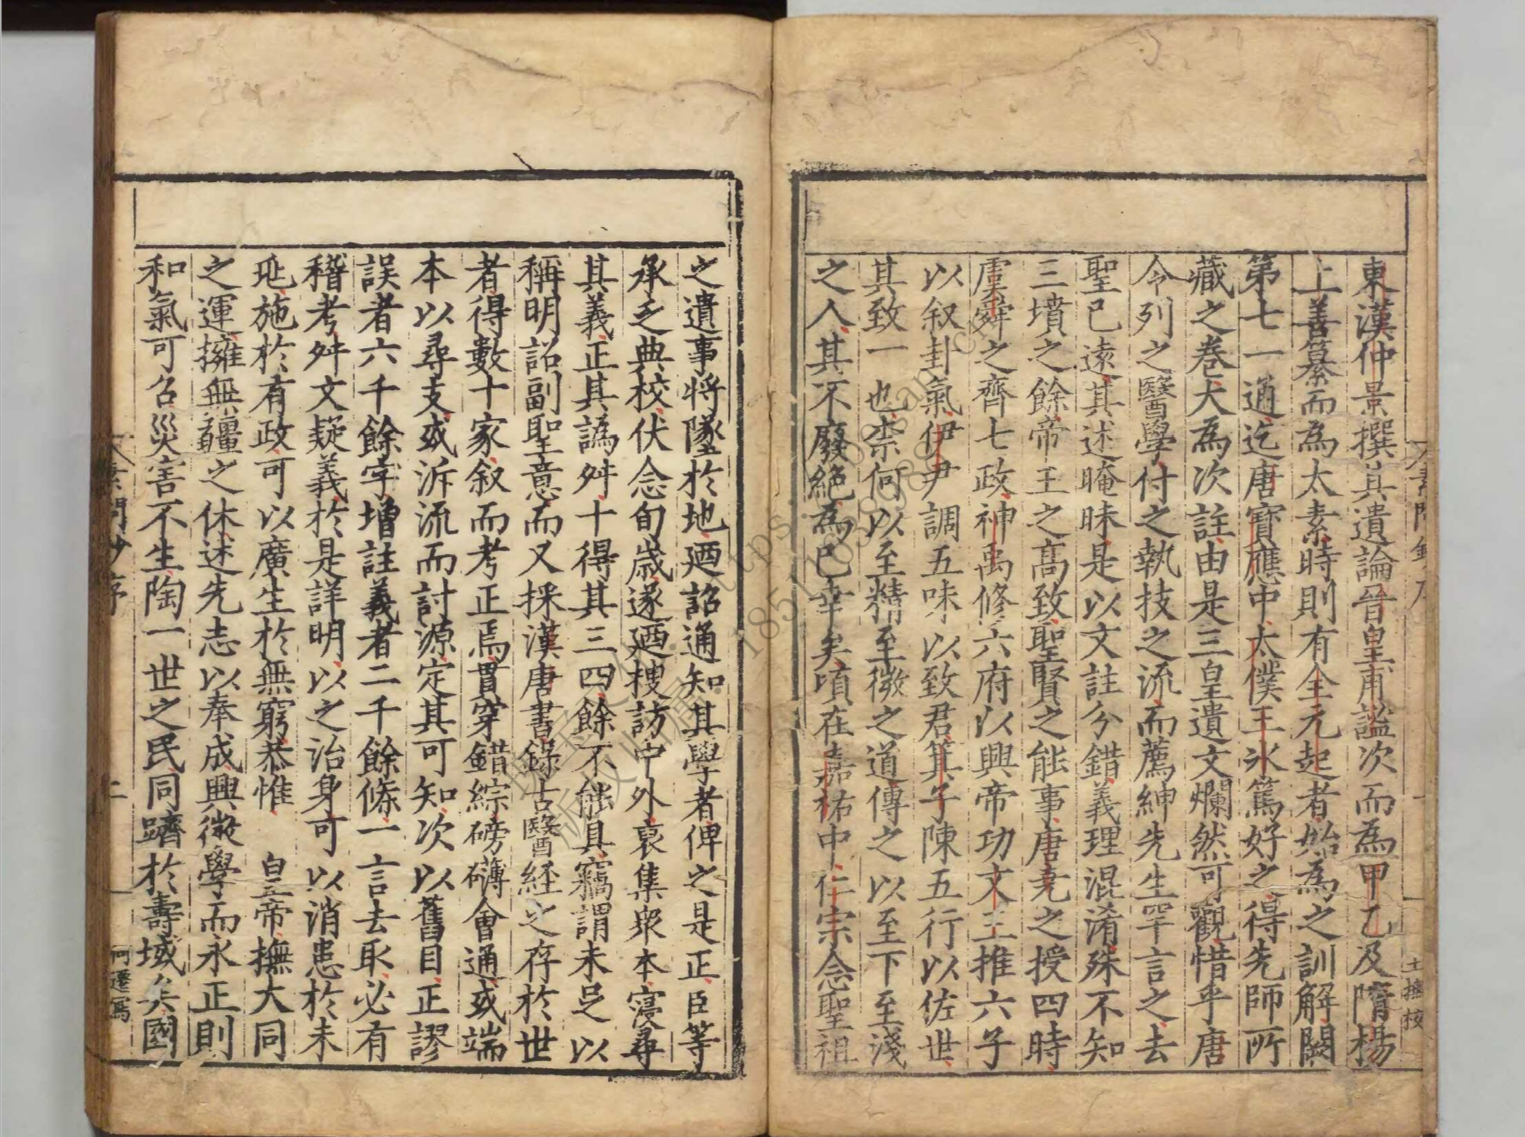 東漢仲景撰其遺論晉皇甫謐次而為甲乙及隋楊
上善纂而為太素時則有全元起者始為之訓解闕
第七一通迄唐寶應中太僕王氷篤好之得先師所
藏之卷大為次註由是三皇遺文爛然可觀惜乎唐
令列之醫學付之執技之流而薦紳先生罕言之去
聖已遠其述晻昧是以文註分錯義理混淆殊不知
三墳之餘帝王之高致聖賢之能事唐堯之授四時
虞舜之齊七政神禹修六府以興帝功文王推六子
以叙卦氣伊尹調五味以致君箕子陳五行以佐世
其致一也柰何以至精至微之道傳之以至下至淺
之人其不廢絕為已幸矣頃在嘉祐中仁宗念聖祖
之遺事將墜於地廼詔通知其學者俾之是正臣等
承乏典校伏念旬歲遂廼搜訪中外裒集衆本寖尋
其義正其譌舛十得其三四餘不能具竊謂未足以
稱明詔副聖意而又採漢唐書錄古醫経之存於世
者得數十家叙而考正焉貫穿錯綜磅礴會通或端
本以尋支或泝流而討源定其可知次以舊目正謬
誤者六千餘字增註義者二千餘條一言去取必有
稽考舛文疑義於是詳明以之治身可以消患於未
兆施於有政可以廣生於無窮恭惟 皇帝撫大同
之運擁無疆之休述先志以奉成興微學而永正則
和氣可召災害不生陶一世之民同躋於壽域矣國
二
何遷寫